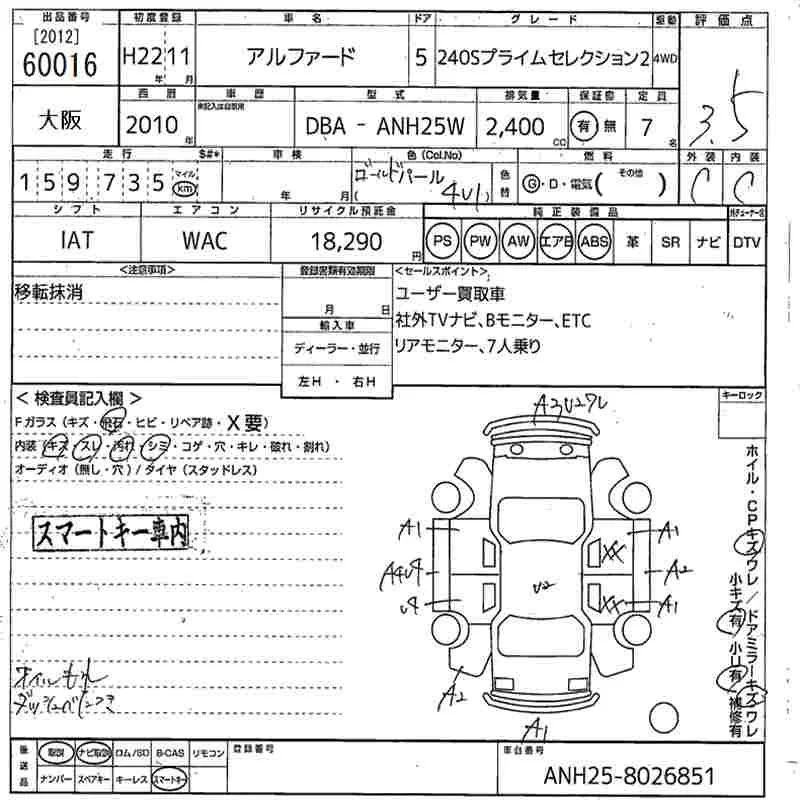 出品番号 初度登録 車名 ドア グレード 駆動 評価点
[2012]
60016 H22年 11月 アルファード 5 240Sプライムセレクション2 4WD 3.5
西暦 車歴 型式 排気量 保証書 定員
未記入は自家用
大阪 2010年 DBA - ANH25W 2,400cc 有 無 7名
走行 $#* 車検 色(Col.No) 燃料 外装 内装
159,735 マイル km 年 月 ゴールドパール (4U1) 色替 G・D・電気( その他 ) C C
シフト エアコン リサイクル預託金 純正装備品
IAT WAC 18,290円 PS PW AW エアB ABS 革 SR ナビ DTV
<注意事項> 登録書類有効期限 <セールスポイント>
移転抹消 月 日 ユーザー買取車
輸入車 社外TVナビ、Bモニター、ETC
ディーラー・並行 リアモニター、7人乗り
左H ・ 右H
キーロック
＜検査員記入欄＞
Fガラス(キズ・飛石・ヒビ・リペア跡・X要)
内装(キズ・スレ・汚れ・シミ・コゲ・穴・キレ・破れ・割れ)
オーディオ(無し・穴)/タイヤ(スタッドレス)
スマートキー車内
A3U2ワレ
A1 A1
XX
A4U4 A2
U2
U4 XX A1
A2
A1
ホイル・CPキズワレ/ドアミラーキズワレ
小キズ有 小U有 補修有
オイルモレ
後送品 取説 ナビ取説 ロム/SD B-CAS リモコン 登録番号 車台番号
ナンバー スペアキー キーレス スマートキー ANH25-8026851